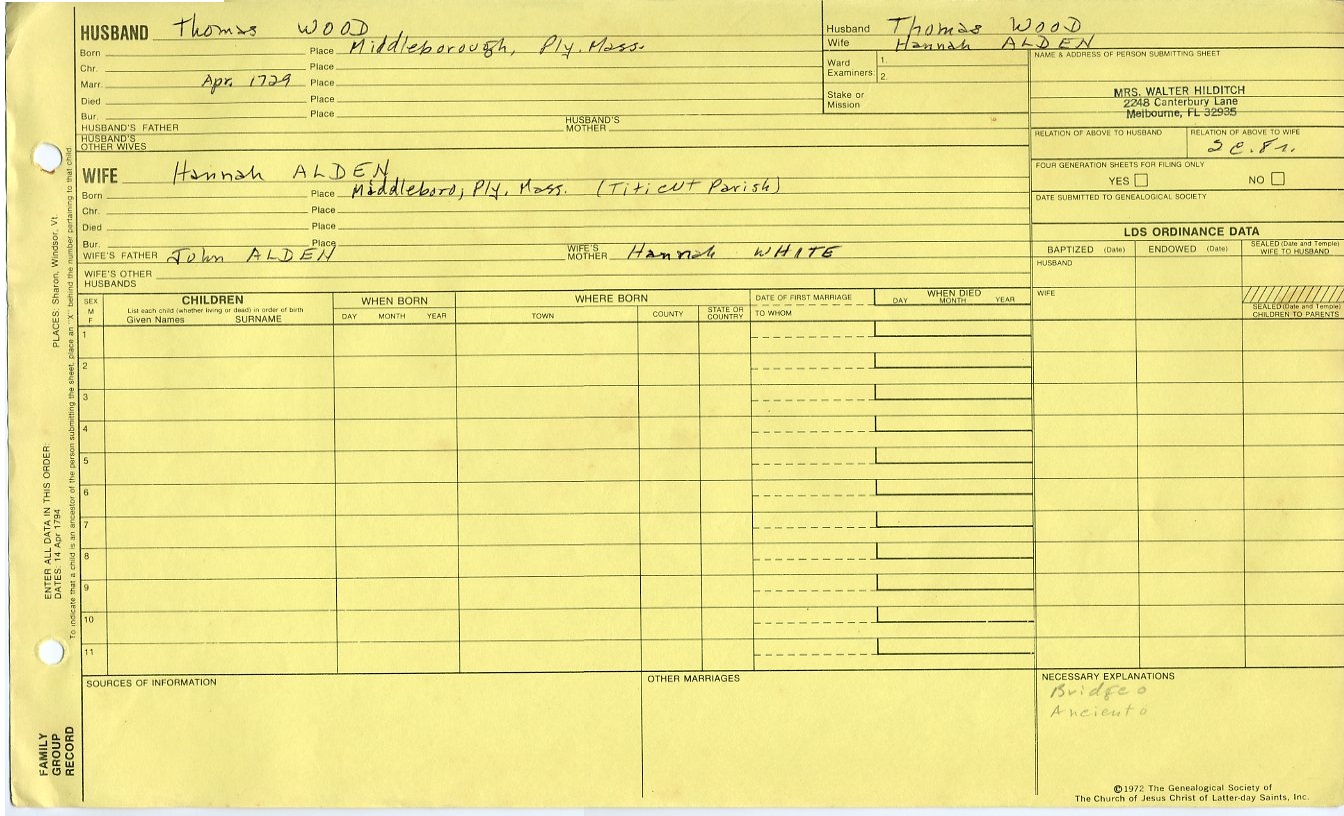 HUSBAND Thomas WOOD
Born Place Middleborough, Ply. Mass.
Chr. Place
Marr. Apr. 1729 Place
Died Place
Bur. Place
HUSBAND'S FATHER HUSBAND'S MOTHER
HUSBAND'S OTHER WIVES
WIFE Hannah ALDEN
Born Place Middleboro, Ply. Mass. (Titicut Parish)
Chr. Place
Died Place
Bur. Place
WIFE'S FATHER John ALDEN WIFE'S MOTHER Hannah WHITE
WIFE'S OTHER HUSBANDS
Husband Thomas WOOD
Wife Hannah ALDEN
Ward Examiners: 1.
2.
Stake or Mission
NAME & ADDRESS OF PERSON SUBMITTING SHEET
MRS. WALTER HILDITCH
2248 Canterbury Lane
Melbourne, FL 32935
RELATION OF ABOVE TO HUSBAND RELATION OF ABOVE TO WIFE
FOUR GENERATION SHEETS FOR FILING ONLY
YES NO
DATE SUBMITTED TO GENEALOGICAL SOCIETY
LDS ORDINANCE DATA
BAPTIZED (Date) ENDOWED (Date) SEALED (Date and Temple) WIFE TO HUSBAND
HUSBAND
WIFE
SEALED (Date and Temple) CHILDREN TO PARENTS
SEX M F
CHILDREN
List each child (whether living or dead) in order of birth
Given Names SURNAME
WHEN BORN
DAY MONTH YEAR
WHERE BORN
TOWN COUNTY STATE OR COUNTRY
DATE OF FIRST MARRIAGE
TO WHOM
WHEN DIED
DAY MONTH YEAR
1
2
3
4
5
6
7
8
9
10
11
SOURCES OF INFORMATION
OTHER MARRIAGES
NECESSARY EXPLANATIONS
©1972 The Genealogical Society of
The Church of Jesus Christ of Latter-day Saints, Inc.
FAMILY GROUP RECORD
ENTER ALL DATA IN THIS ORDER:
DATES: 14 Apr 1794
PLACES: Sharon, Windsor, Vt.
To indicate that a child is an ancestor of the person submitting the sheet, place an "X" behind the number pertaining to that child.